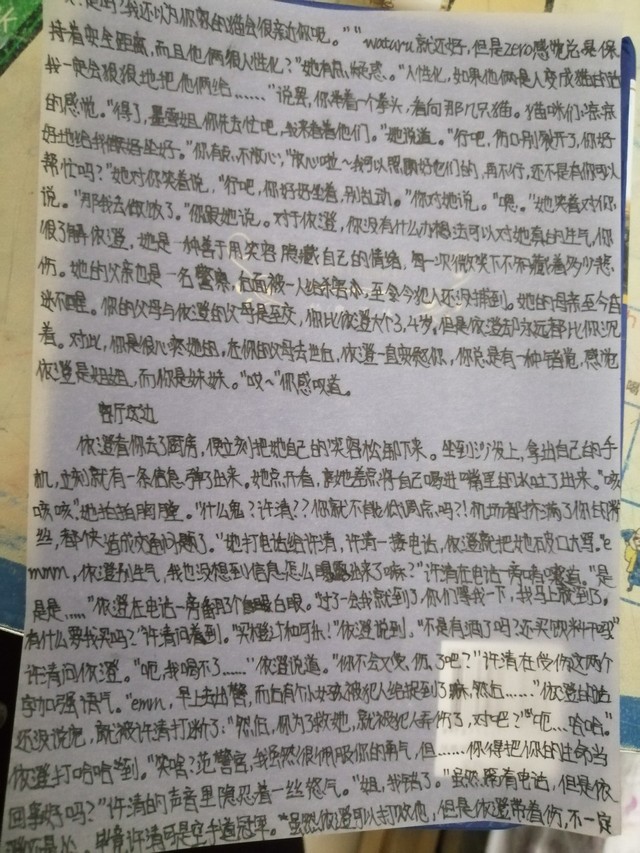 是吗?我还以为你家的猫会很亲近你呢。""wataru就还好,但是zero感觉总是保
持着安全距离,而且他俩很人性化?"她有点疑惑。"人性化,如果他俩是人变成猫的话
我一定会狠狠地把他俩给……"说罢,你举着一个拳头,看向那几只猫。猫咪们:凉凉
的感觉。"得了,墨雪姐你先去忙吧,我来看着他们。"她说道。"行吧,伤口别裂开了,你好
好地给我坐好。"你有点不放心,"放心啦~我可以照顾好他们的,再不行,还不是有你可以
帮忙吗?"她对你笑着说,"行吧,你好好坐着,别乱动。"你对她说。"嗯。"她笑着对你
说。"那我去做饭了。"你跟她说。对于依澄,你没有什么办法可以对她真的生气,你
很了解依澄,她是一种善于用笑容隐藏自己的情绪,每一次微笑下不知藏着多少悲
伤。她的父亲也是一名警察,后面被一人给杀害亦,至今犯人还没捕到。她的母亲至今昏
迷不醒。你的父母与依澄的父母是至交,你比依澄大了4岁,但是依澄却永远都比你沉
着。对此,你是很心疼她的,在你的父母去世后,依澄一直安慰你,你总是有一种错觉,感觉
依澄是姐姐,而你是妹妹。"哎~"你感叹道。
客厅这边
依澄看你去了厨房,便立刻把她自己的笑容松卸下来。坐到沙发上,拿出自己的手
机,立刻就有一条信息弹了出来。她点开看,离她差点将自己喝进嘴里的水吐了出来。"咳
咳咳"她拍拍胸膛。"什么鬼?许清??你就不能低调点吗?!机场都挤满了你的粉
丝,都快造成交通问题了。"她打电话给许清,许清一接电话,依澄就把她破口大骂。"e
mmm,依澄别生气,我也没想到信息怎么曝露出来了嘛?"许清在电话一旁嘀嘀道。"是
是是……"依澄在电话一旁翻了个白眼。"过了一会我就到了,你们等我一下,我马上就到了。
有什么要我买吗?"许清问着到。"买橙汁和可乐!"依澄说到,"不是有酒了吗?还买饮料干吗"
许清问依澄。"呃,我喝不了……"依澄说道。"你不会又受伤了吧?"许清在受伤这两个
字加强语气。"emm,早上去出警,而后有个小女孩被犯人给捉到了嘛,然后……"依澄的话
还没说完,就被许清打断了:"然后,你为了救她,就被犯人弄伤了,对吧?""呃…哈哈。"
依澄打哈哈到。"笑啥?范警官,我虽然很佩服你的勇气,但……你得把你的性命当
回事好吗?"许清的声音里隐忍着一丝怒气。"姐,我错了。"虽然隔着电话,但是依
澄还是怂,毕竟许清可是空手道冠军。"虽然依澄可以打败他,但是依澄带着伤,不一定